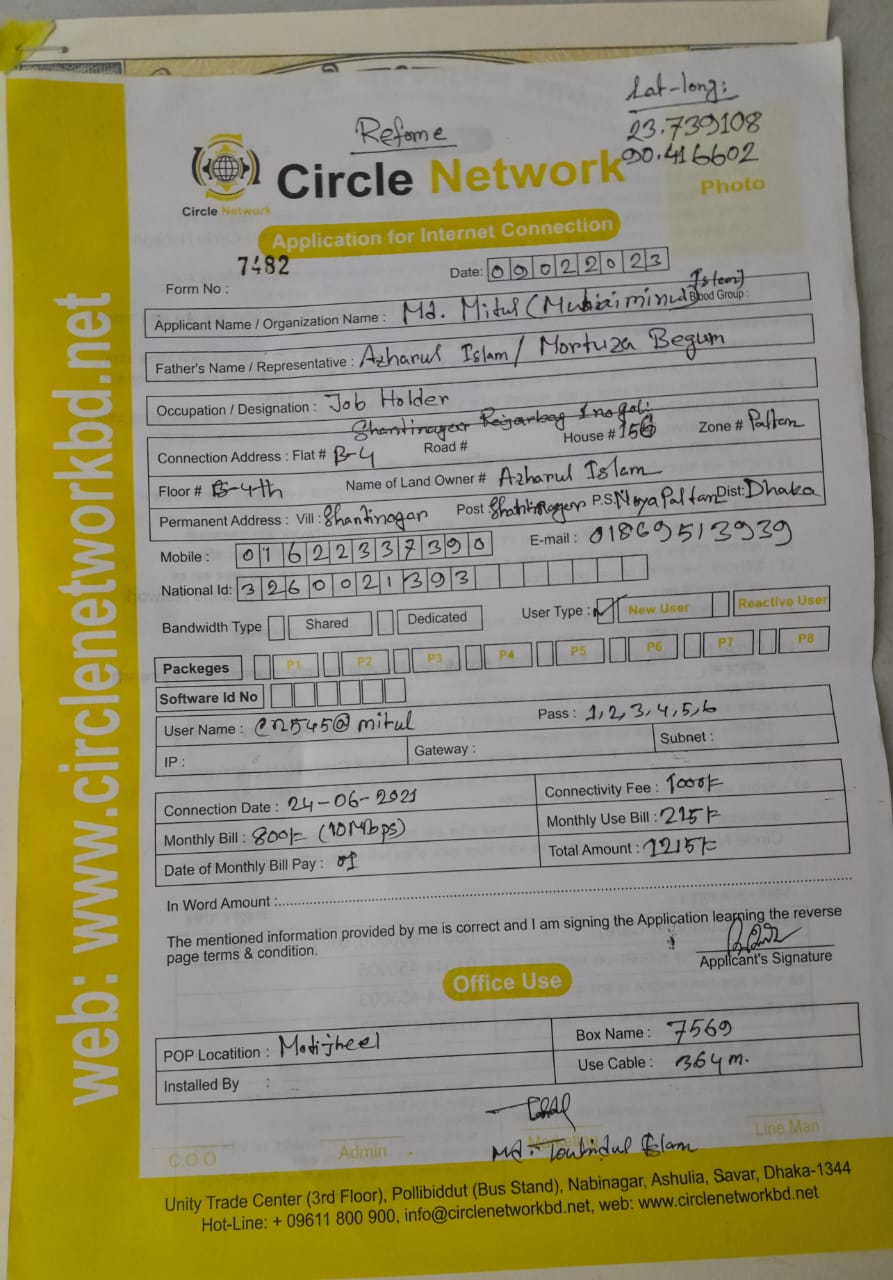 Lat-long:
23.739108
90.416602
Refome
Circle Network
Circle Network
Photo
Application for Internet Connection
Form No : 7482
Date: 09022023
Applicant Name / Organization Name : Md. Mitul (Mubaiminul Islam) Blood Group :
Father's Name / Representative : Azharul Islam / Mortuza Begum
Occupation / Designation : Job Holder
Shantinagar Rajarbag 1no goli
Connection Address : Flat # B-4 Road # House # 156 Zone # Paltan
Floor # B-4th Name of Land Owner # Azharul Islam
Permanent Address : Vill : Shantinagar Post Shantinagar P.S. Noya Paltan Dist: Dhaka
Mobile : 01622337390 E-mail : 01869513939
National Id: 3260021393
Bandwidth Type Shared Dedicated User Type : ✓ New User Reactive User
Packeges P1 P2 P3 P4 P5 P6 P7 P8
Software Id No
User Name : cn545@mitul Pass : 1,2,3,4,5,6
IP : Gateway : Subnet :
Connection Date : 24-06-2021 Connectivity Fee : 1000/-
Monthly Bill : 800/- (10Mbps) Monthly Use Bill : 215/-
Date of Monthly Bill Pay : 01 Total Amount : 1215/-
In Word Amount :
The mentioned information provided by me is correct and I am signing the Application learning the reverse
page terms & condition.
Applicant's Signature
Office Use
POP Locatition : Motijheel Box Name : 7569
Installed By : Use Cable : 364 m.
Md. Touhidul Islam
C.O.O Admin Line Man
Unity Trade Center (3rd Floor), Pollibiddut (Bus Stand), Nabinagar, Ashulia, Savar, Dhaka-1344
Hot-Line: + 09611 800 900, info@circlenetworkbd.net, web: www.circlenetworkbd.net
web: www.circlenetworkbd.net